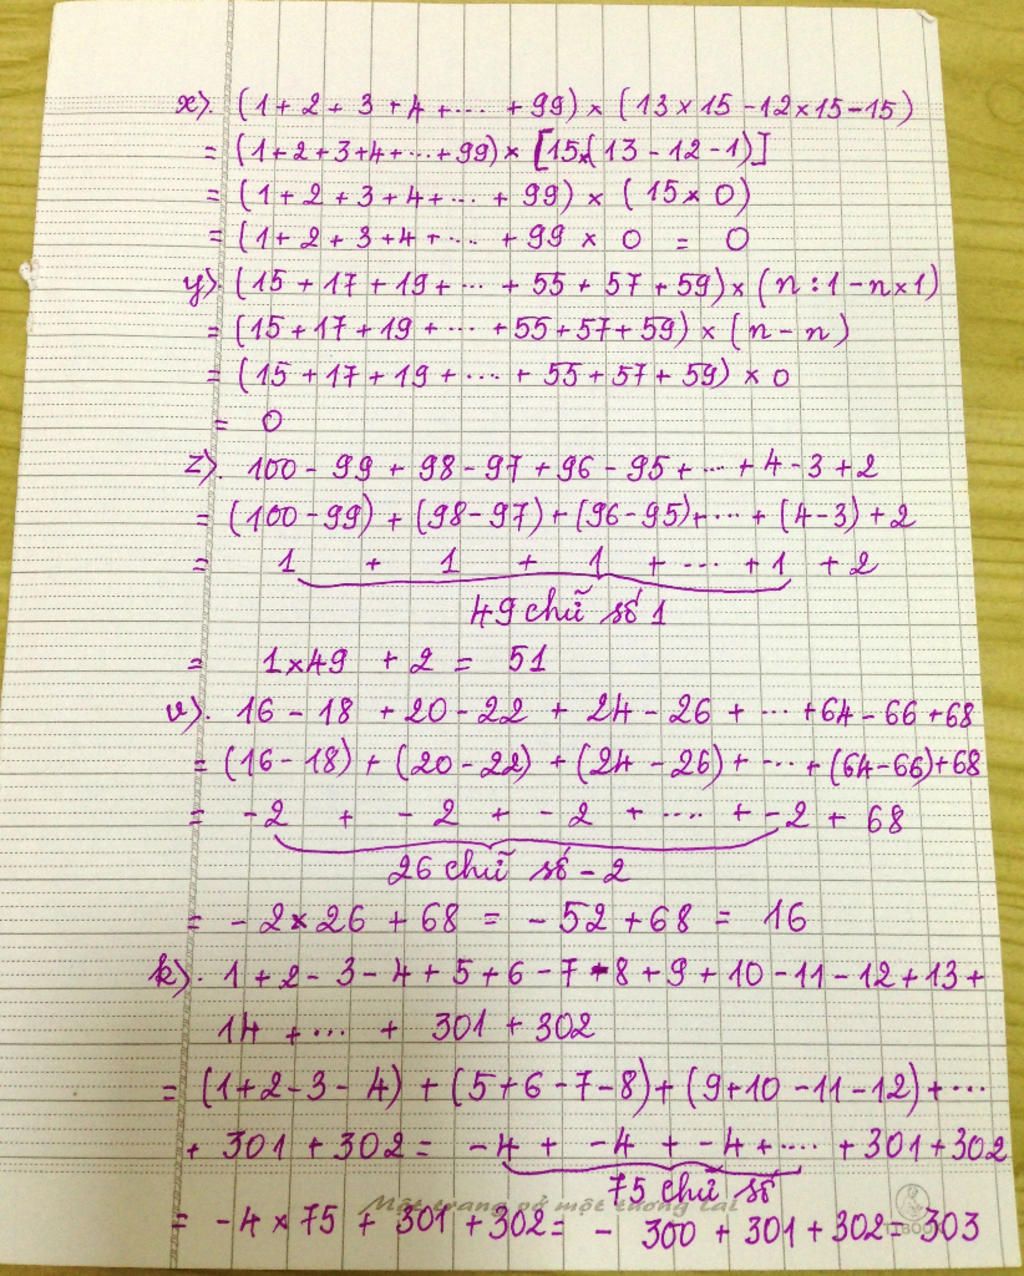 x). (1 + 2 + 3 + 4 + ... + 99) × (13 × 15 - 12 × 15 - 15)
= (1 + 2 + 3 + 4 + ... + 99) × [15×(13 - 12 - 1)]
= (1 + 2 + 3 + 4 + ... + 99) × (15 × 0)
= (1 + 2 + 3 + 4 + ... + 99 × 0 = 0
y). (15 + 17 + 19 + ... + 55 + 57 + 59) × (n : 1 - n × 1)
= (15 + 17 + 19 + ... + 55 + 57 + 59) × (n - n)
= (15 + 17 + 19 + .... + 55 + 57 + 59) × 0
= 0
z). 100 - 99 + 98 - 97 + 96 - 95 + ... + 4 - 3 + 2
= (100 - 99) + (98 - 97) + (96 - 95) + ... + (4 - 3) + 2
= 1 + 1 + 1 + ... + 1 + 2
49 chữ số 1
= 1 × 49 + 2 = 51
v). 16 - 18 + 20 - 22 + 24 - 26 + ... + 64 - 66 + 68
= (16 - 18) + (20 - 22) + (24 - 26) + ... + (64 - 66) + 68
= -2 + - 2 + - 2 + .... + - 2 + 68
26 chữ số - 2
= - 2 × 26 + 68 = - 52 + 68 = 16
k). 1 + 2 - 3 - 4 + 5 + 6 - 7 - 8 + 9 + 10 - 11 - 12 + 13 +
14 + ... + 301 + 302
= (1 + 2 - 3 - 4) + (5 + 6 - 7 - 8) + (9 + 10 - 11 - 12) + ...
+ 301 + 302 = - 4 + - 4 + - 4 + .... + 301 + 302
75 chữ số
Một trang vở một tương lai
= - 4 × 75 + 301 + 302 = - 300 + 301 + 302 = 303